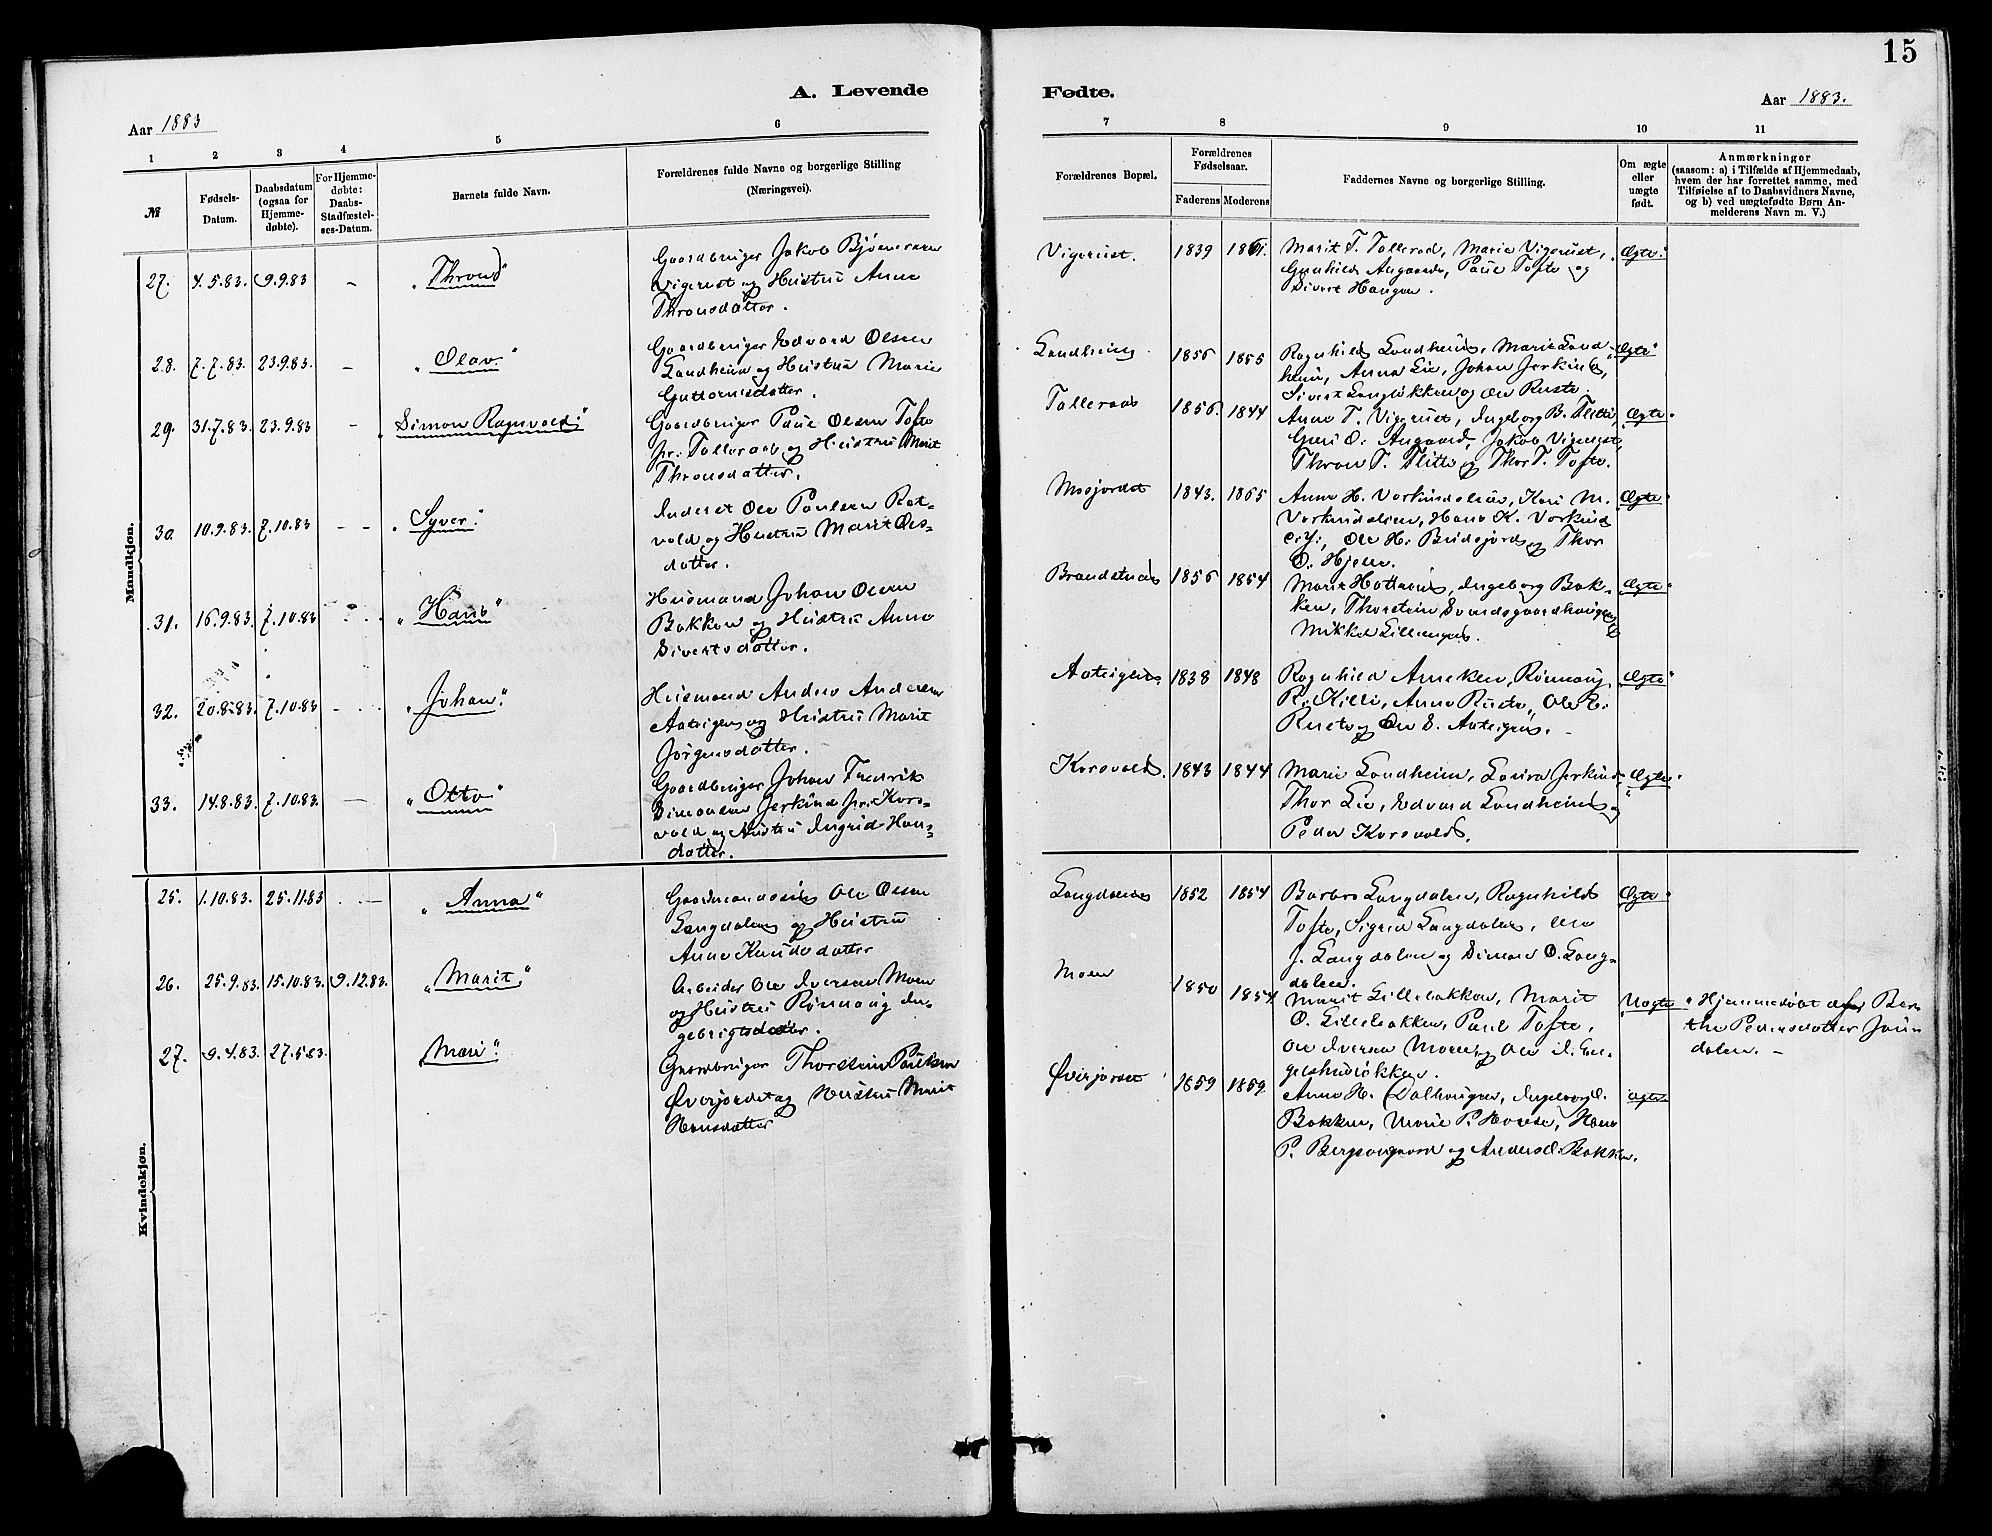 15
A. Levende
Fødte.
Aar 1883
Aar 1883.
1 2 3 4 5 6
7 8 9 10 11
№
Fødsels-
Datum.
Daabsdatum
(ogsaa for
Hjemme-
døbte).
For Hjemme-
døbte:
Daabs-
Stadfæstel-
ses-Datum.
Barnets fulde Navn.
Forældrenes fulde Navne og borgerlige Stilling
(Næringsvei).
Forældrenes Bopæl.
Forældrenes
Fødselsaar.
Faderens Moderens
Faddernes Navne og borgerlige Stilling.
Om ægte
eller
uægte
født.
Anmærkninger
(saasom: a) i Tilfælde af Hjemmedaab,
hvem der har forrettet samme, med
Tilføielse af to Daabsvidners Navne,
og b) ved uægtefødte Børn An-
melderens Navn m. V.)
Mandkjøn.
27. 4.5.83. 9.9.83 - "Thrond"
Gaardbruger Jakob
Vigerust og Hustru Anne
Thronsdatter.
Vigerust. 1839
Marit T. Tallerad, Marie Vigerust,
Gunhild Angaard, Paul Tofte og
Sivert Haugen.
Ægte.
28. 7.7.83. 23.9.83. - "Olav"
Gaardbruger Edvard Olsen
Landheim og Hustru Marie
Guttormsdatter.
Landheim 1855
Ragnhild Landheim, Marie Land-
heim, Anna Lie, Johan Jerkind,
Sivert Langløkken og Ole Ruste.
Ægte
29. 31.7.83. 23.9.83 - "Simon Ragnvald"
Gaardbruger Paul Olsen Tofte
pr. Tallerad og Hustru Marit
Thronsdatter.
Tallerad 1856. 1844
Anne T. Vigerust, Ingeborg B. Flitti,
Guri O. Angaard, Jakob Vigerust,
Thron T. Flitti og Thor T. Tofte.
Ægte
30 10.9.83 7.10.83 - - "Syver"
Inderst Ole Paulsen Rat-
vold og Hustru Marit Ols-
datter.
Mosjordet 1843. 1855
Anne H. Vorkindslien, Kari M.
Vorkindslien, Hans K. Vorkind
Ole H. og Thor
O. Hjelle.
Ægte
31. 16.9.83. 7.10.83 "Hans"
Husmand Johan Olsen
Bakken og Hustru Anne
Sivertsdatter.
1856 1854
Marit Hattrem, Ingeborg Bak-
ken, Thorstein Svendsgaardhaugen og
Mikkel Lilleenget.
Ægte
32. 20.8.83. 7.10.83 "Johan"
Husmand Anders Andersen
Aateigen og Hustru Marit
Jørgensdatter.
Aateigen 1838 1848
Ragnhild Anneken, Rønnaug
R. Killi, Anne Ruste, Ole E.
Ruste og Ole S. Aateigen.
Ægte
33. 14.8.83. 7.10.83. - "Otto"
Gaardbruger Johan Fredrik
Simensen Jerkind pr. Kors-
vold og Hustru Ingrid Han-
datter.
Korsvold. 1843 1844
Marie Landheim, Laura Jerkind,
Thor Lie, Edvard Landheim og
Peder Korsvold.
Ægte
Kvindekjøn.
25. 1.10.83. 25.11.83 - "Anna"
Gaardmandssøn Ole Olsen
Langdalen og Hustru
Anne Knudsdatter
Langdalen 1852 1854
Barbro Langdalen, Ragnhild
Tofte, Sigrid Langdalen, Ole
J. Langdalen og Simen O. Lang-
dalen.
Ægte
26. 25.9.83. 15.10.83 9.12.83. "Marit"
Arbeider Ole Iversen Moen
og Hustru Rønnaug In-
gebrigtsdatter.
Moen 1850 1854
Marit Lillebakken, Marit
O. Lillebakken, Paul Tofte,
Ole Iversen Moen og Ole
Uægte
Hjemmedøbt af Ber-
the Pedersdatter Jøn-
dalen. -
27. 9.4.83. 27.5.83. "Mari"
Gaardbruger Thorstein Paulsen
Øverjordet og Hustru Marit
Hansdatter
Øverjordet 1859 1859
Anne H. Dalhaugen, Ingeborg
Bakken, Marie P. Horese, Hans
P. Bergsengaard og Anders Bakken.
ægte